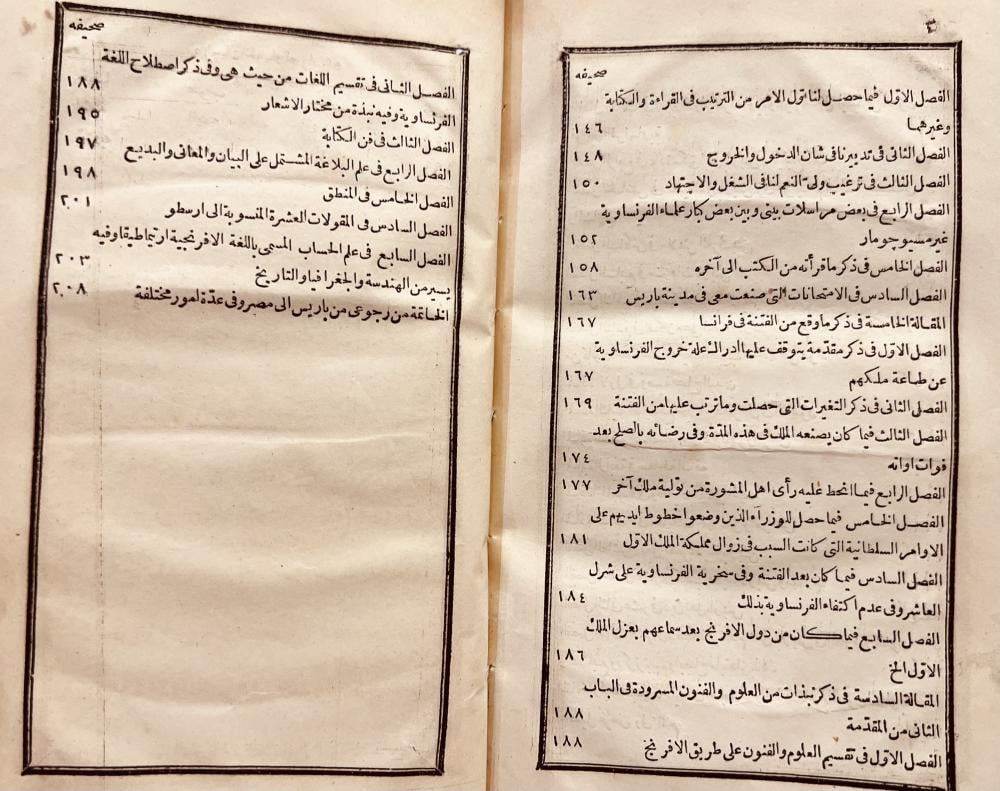 ٣
صحيفه
الفصل الاوّل فيما حصل لنا اوّل الامر من الترتيب فى القراءة والكتابة
وغيرهما ١٤٦
الفصل الثانى فى تدبيرنا فى شان الدخول والخروج ١٤٨
الفصل الثالث فى ترغيب ولىّ النعم لنا فى الشغل والاجتهاد ١٥٠
الفصل الرابع فى بعض مراسلات بينى وبين بعض كبار علماء الفرنساوية
غير مسيو جومار ١٥٢
الفصل الخامس فى ذكر ما قرأته من الكتب الى آخره ١٥٨
الفصل السادس فى الامتحانات التى صنعت معى فى مدينة باريس ١٦٣
المقالة الخامسة فى ذكر ما وقع من الفتنة فى فرانسا ١٦٧
الفصل الاوّل فى ذكر مقدّمة يتوقف عليها ادراك علة خروج الفرنساوية
عن طاعة ملكهم ١٦٧
الفصل الثانى فى ذكر التغيرات التى حصلت وما ترتب عليها من الفتنة ١٦٩
الفصل الثالث فيما كان يصنعه الملك فى هذه المدّة وفى رضائه بالصلح بعد
فوات اوانه ١٧٤
الفصل الرابع فيما انحط عليه رأى اهل المشورة من تولية ملك آخر ١٧٧
الفصل الخامس فيما حصل للوزرآء الذين وضعوا خطوط ايديهم على
الاوامر السلطانية التى كانت السبب فى زوال مملكة الملك الاوّل ١٨١
الفصل السادس فيما كان بعد الفتنة وفى سخرية الفرنساوية على شرل
العاشر وفى عدم اكتفاء الفرنساوية بذلك ١٨٤
الفصل السابع فيما كان من دول الافرنج بعد سماعهم بعزل الملك
الاوّل الخ ١٨٦
المقالة السادسة فى ذكر نبذات من العلوم والفنون المسرودة فى الباب
الثانى من المقدّمة ١٨٨
الفصل الاوّل فى تقسيم العلوم والفنون على طريق الافرنج ١٨٨
صحيفه
الفصل الثانى فى تقسيم اللغات من حيث هى وفى ذكر اصطلاح اللغة
الفرنساوية وفيه نبذة من مختار الاشعار ١٨٨
الفصل الثالث فى فن الكتابة ١٩٥
الفصل الرابع فى علم البلاغة المشتمل على البيان والمعانى والبديع ١٩٧
الفصل الخامس فى المنطق ١٩٨
الفصل السادس فى المقولات العشرة المنسوبة الى ارسطو ٢٠١
الفصل السابع فى علم الحساب المسمى باللغة الافرنجية ارتماطيقا وفيه
يسير من الهندسة والجغرافيا والتاريخ ٢٠٣
الخاتمة من رجوعى من باريس الى مصر وفى عدّة امور مختلفة ٢٠٨